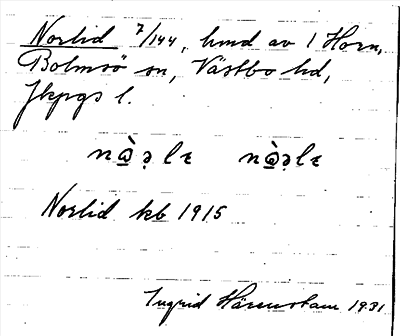 Norlid 7/144, hmd av 1 Horn,
Bolmsö sn, Västbo hd,
Jkpgs l.
nὰ̲ə̣lɛ nὰ̲ə̣lɛ
Norlid kb 1915
Ingrid Härenstam 1931